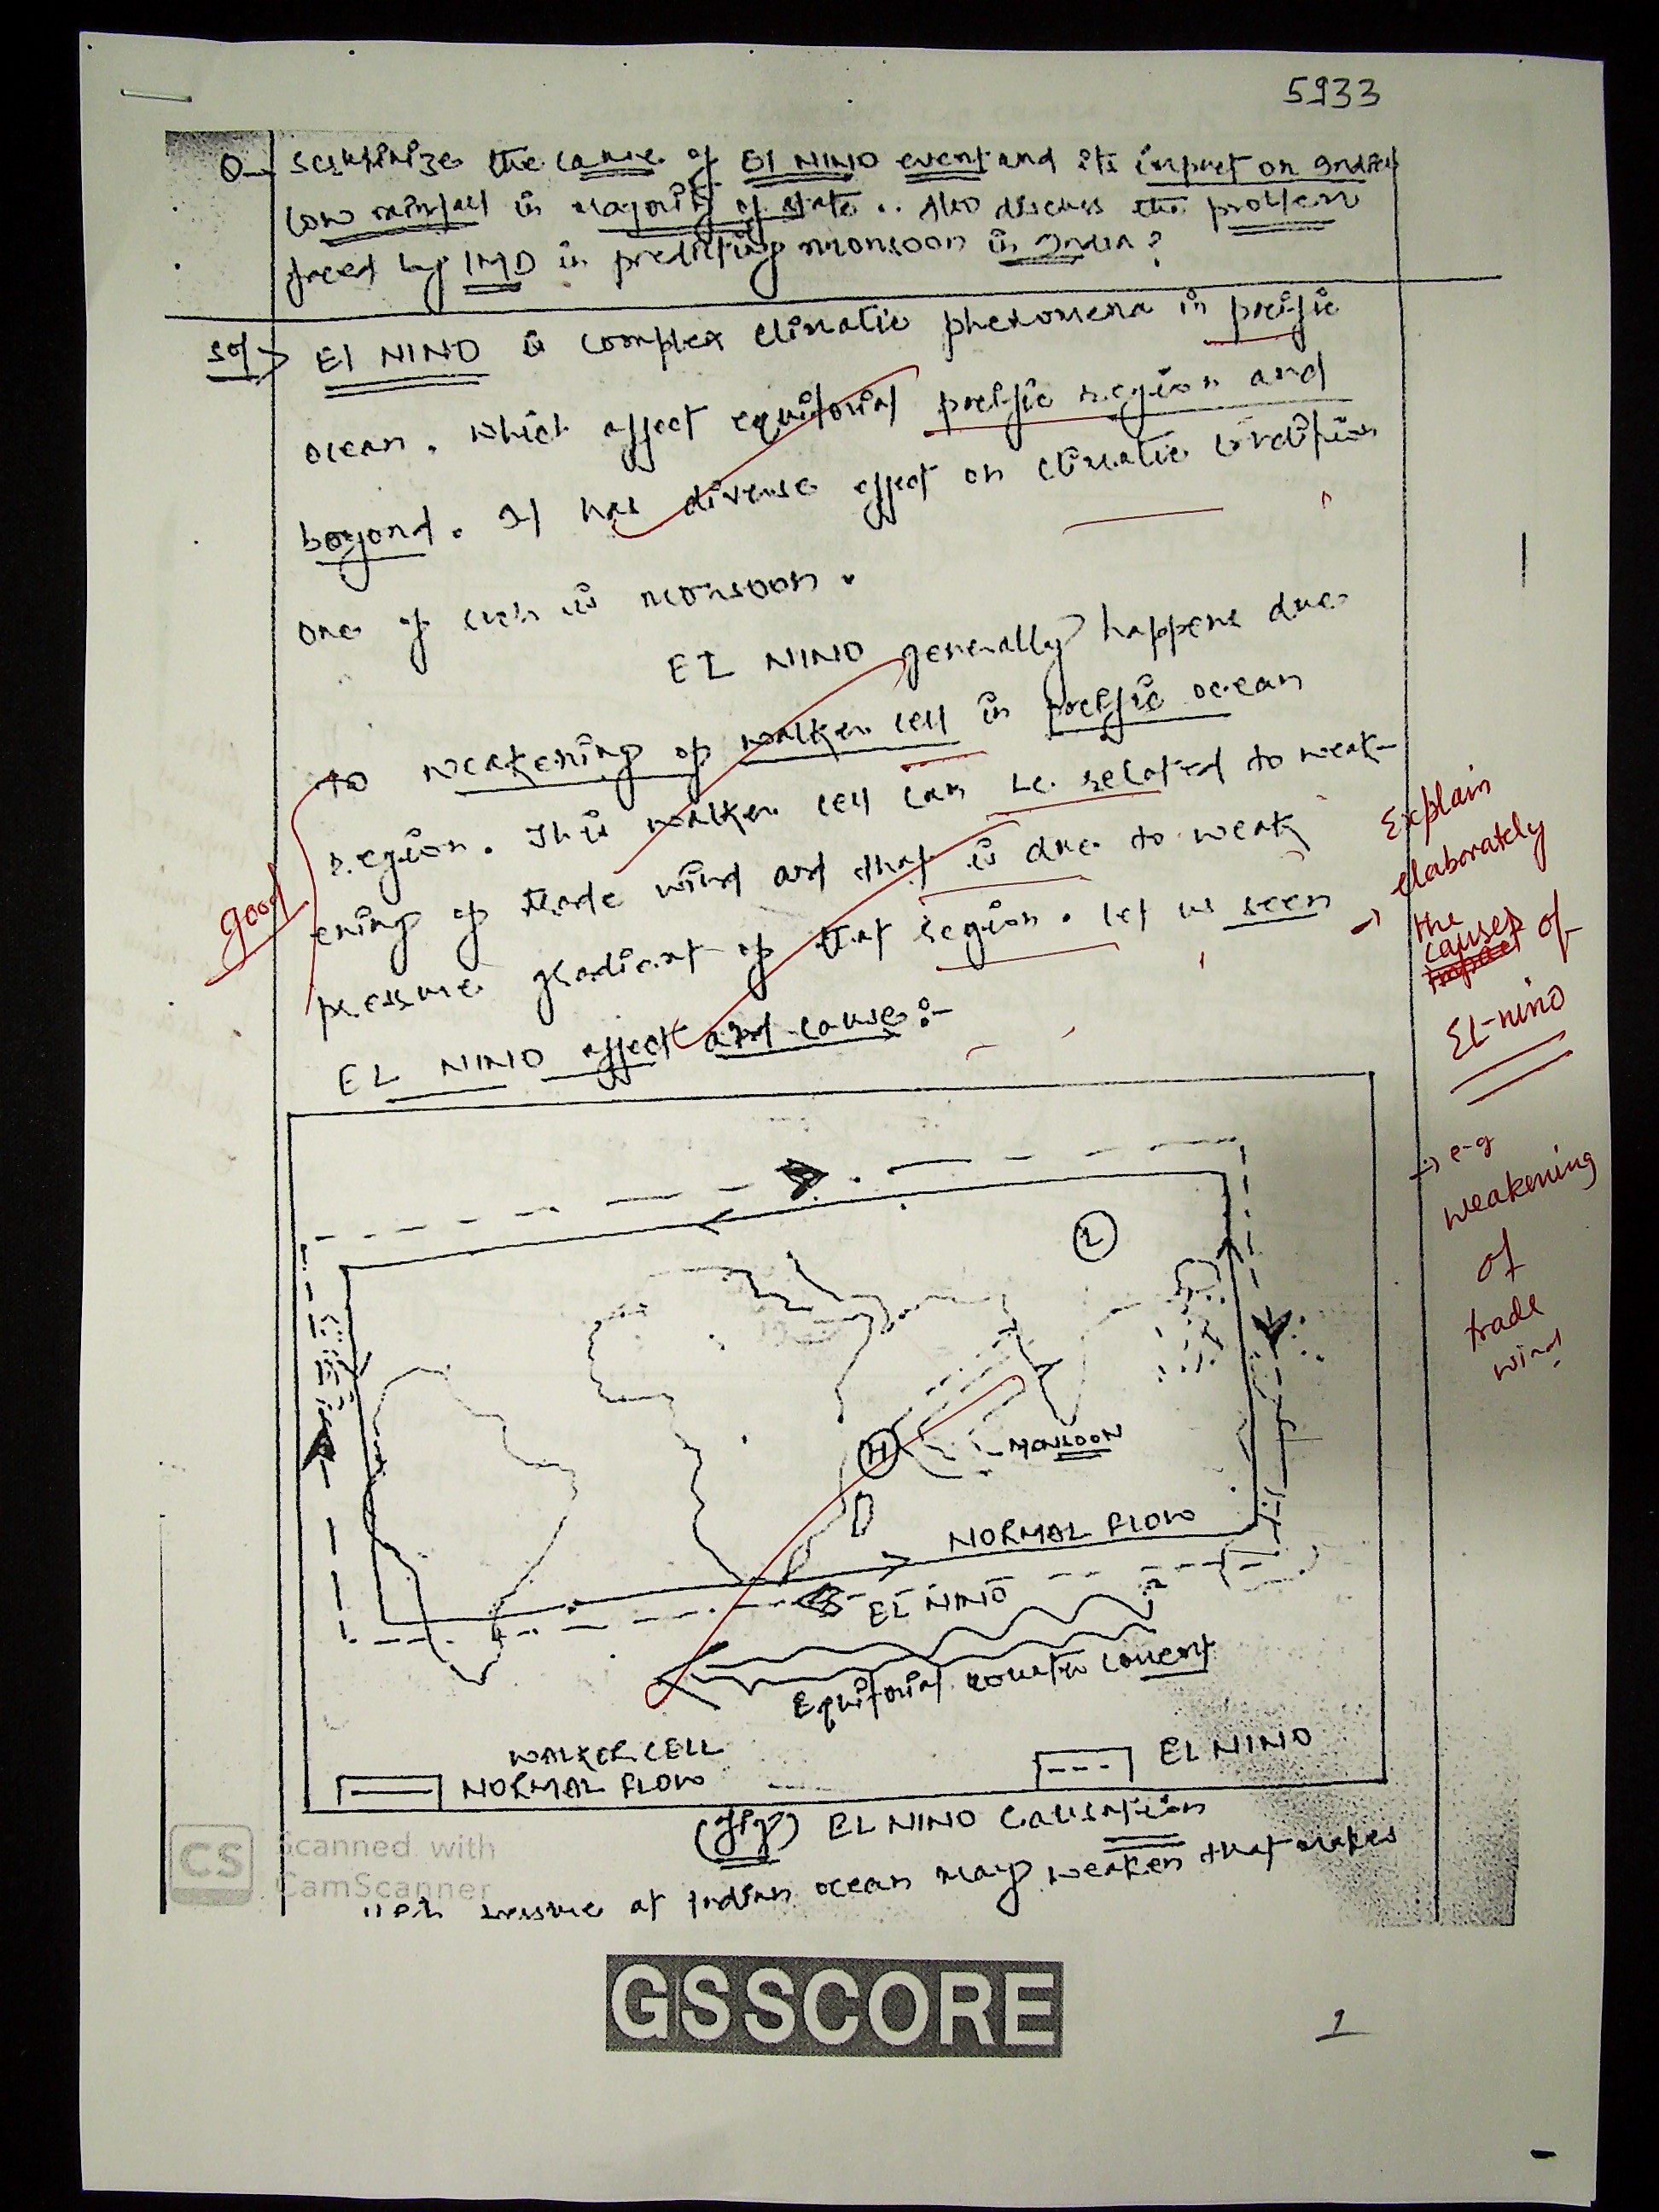 5933
Q- Scrutinize the cause of El NINO event and its impact on India
low rainfall in majority of state. Also discuss the problem
faced by IMD in predicting monsoon in India?
Sol> El NINO is complex climatic phenomena in pacific
ocean. which affect equitorial pacific region and
beyond. It has diverse effect on climatic condition
one of such is monsoon.
EL NINO generally happens due
to weakening of walker cell in pacific ocean
region. This walker cell can be related to weak-
ening of trade wind and that is due to weak
pressure gradient of that region. let us seen
EL NINO affect and cause :-
good
Explain
elaborately
→ the
causes of
El-nino
→ e-g
weakening
of
trade
wind
L
H
MONSOON
NORMAL FLOW
EL NINO
Equitorial counter current
WALKER CELL
NORMAL FLOW
EL NINO
(fig) EL NINO Causation
pressure at Indian ocean may weaken that makes
CS Scanned with
CamScanner
GSSCORE
1